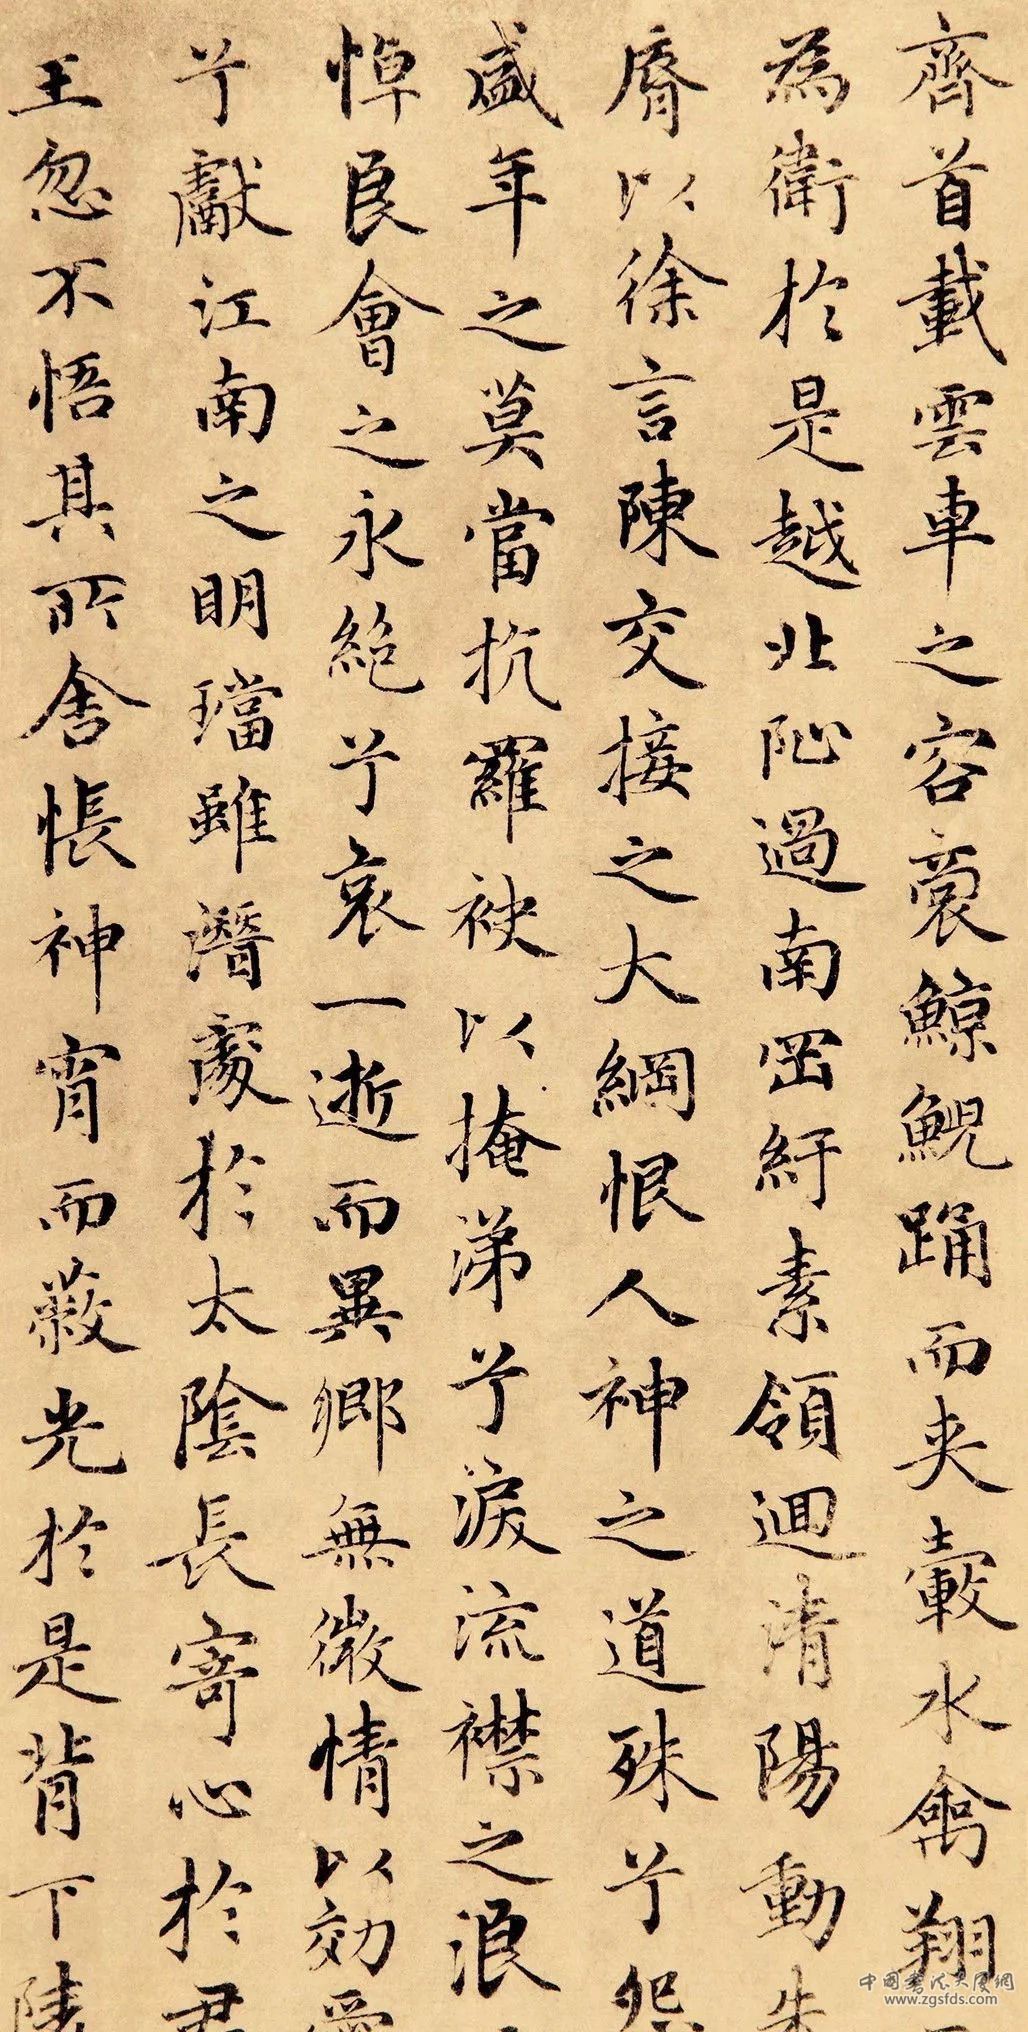 齊首載雲車之容裔鯨鯢踊而夾轂水禽翔
為衛於是越北沚過南岡紆素領迴清陽動朱
脣以徐言陳交接之大綱恨人神之道殊兮怨
盛年之莫當抗羅袂以掩涕兮淚流襟之浪
悼良會之永絕兮哀一逝而異鄉無微情以効愛
兮獻江南之明璫雖潛處於太陰長寄心於君
王忽不悟其所舍悵神宵而蔽光於是背下陵
中国书法大厦網
www.zgsfds.com